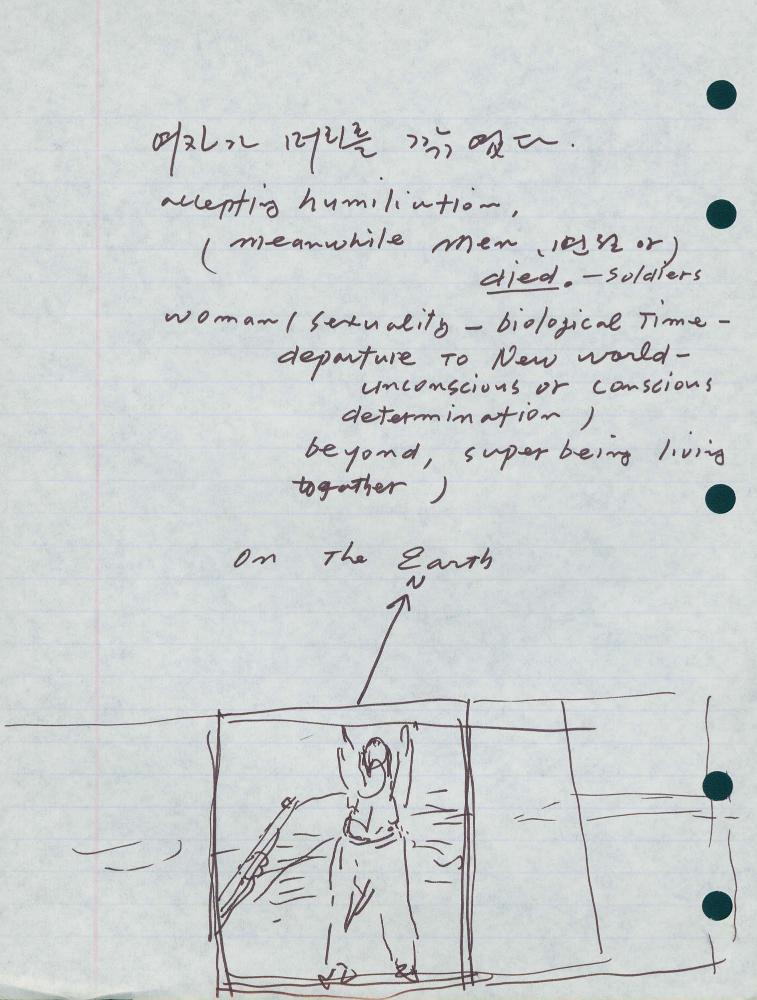 여자가 머리를 깎였다.
accepting humiliation,
( meanwhile men, 면회 or)
died. - soldiers
woman ( sexuality - biological Time -
departure To New world -
unconscious or conscious
determination )
beyond, super being living
together )
On The Earth
N